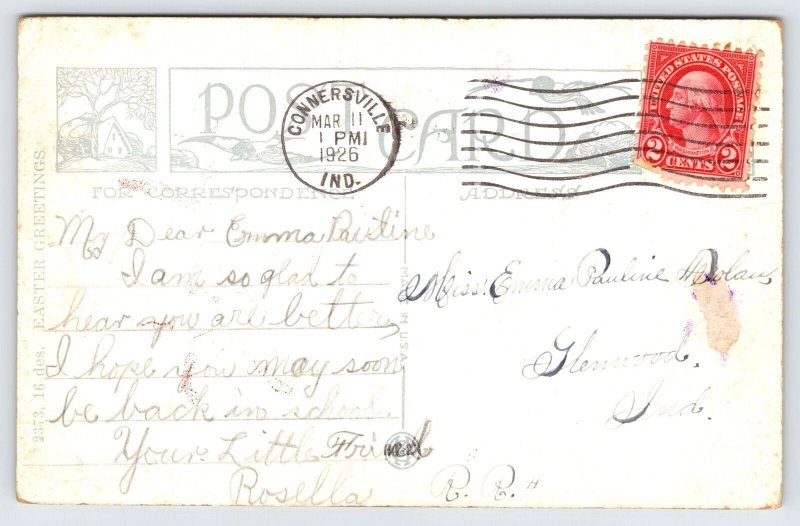 POST CARD
CONNERSVILLE
MAR 11
1 PM
1926
IND.
UNITED STATES POSTAGE
2 CENTS 2
FOR CORRESPONDENCE
ADDRESS
2373, 16 des. EASTER GREETINGS.
MADE IN U.S.A.
My Dear Emma Pauline
I am so glad to
hear you are better,
I hope you may soon
be back in school.
Your Little Friend
Rosella
Miss. Emma Pauline
Glenwood,
Ind.
R. R.